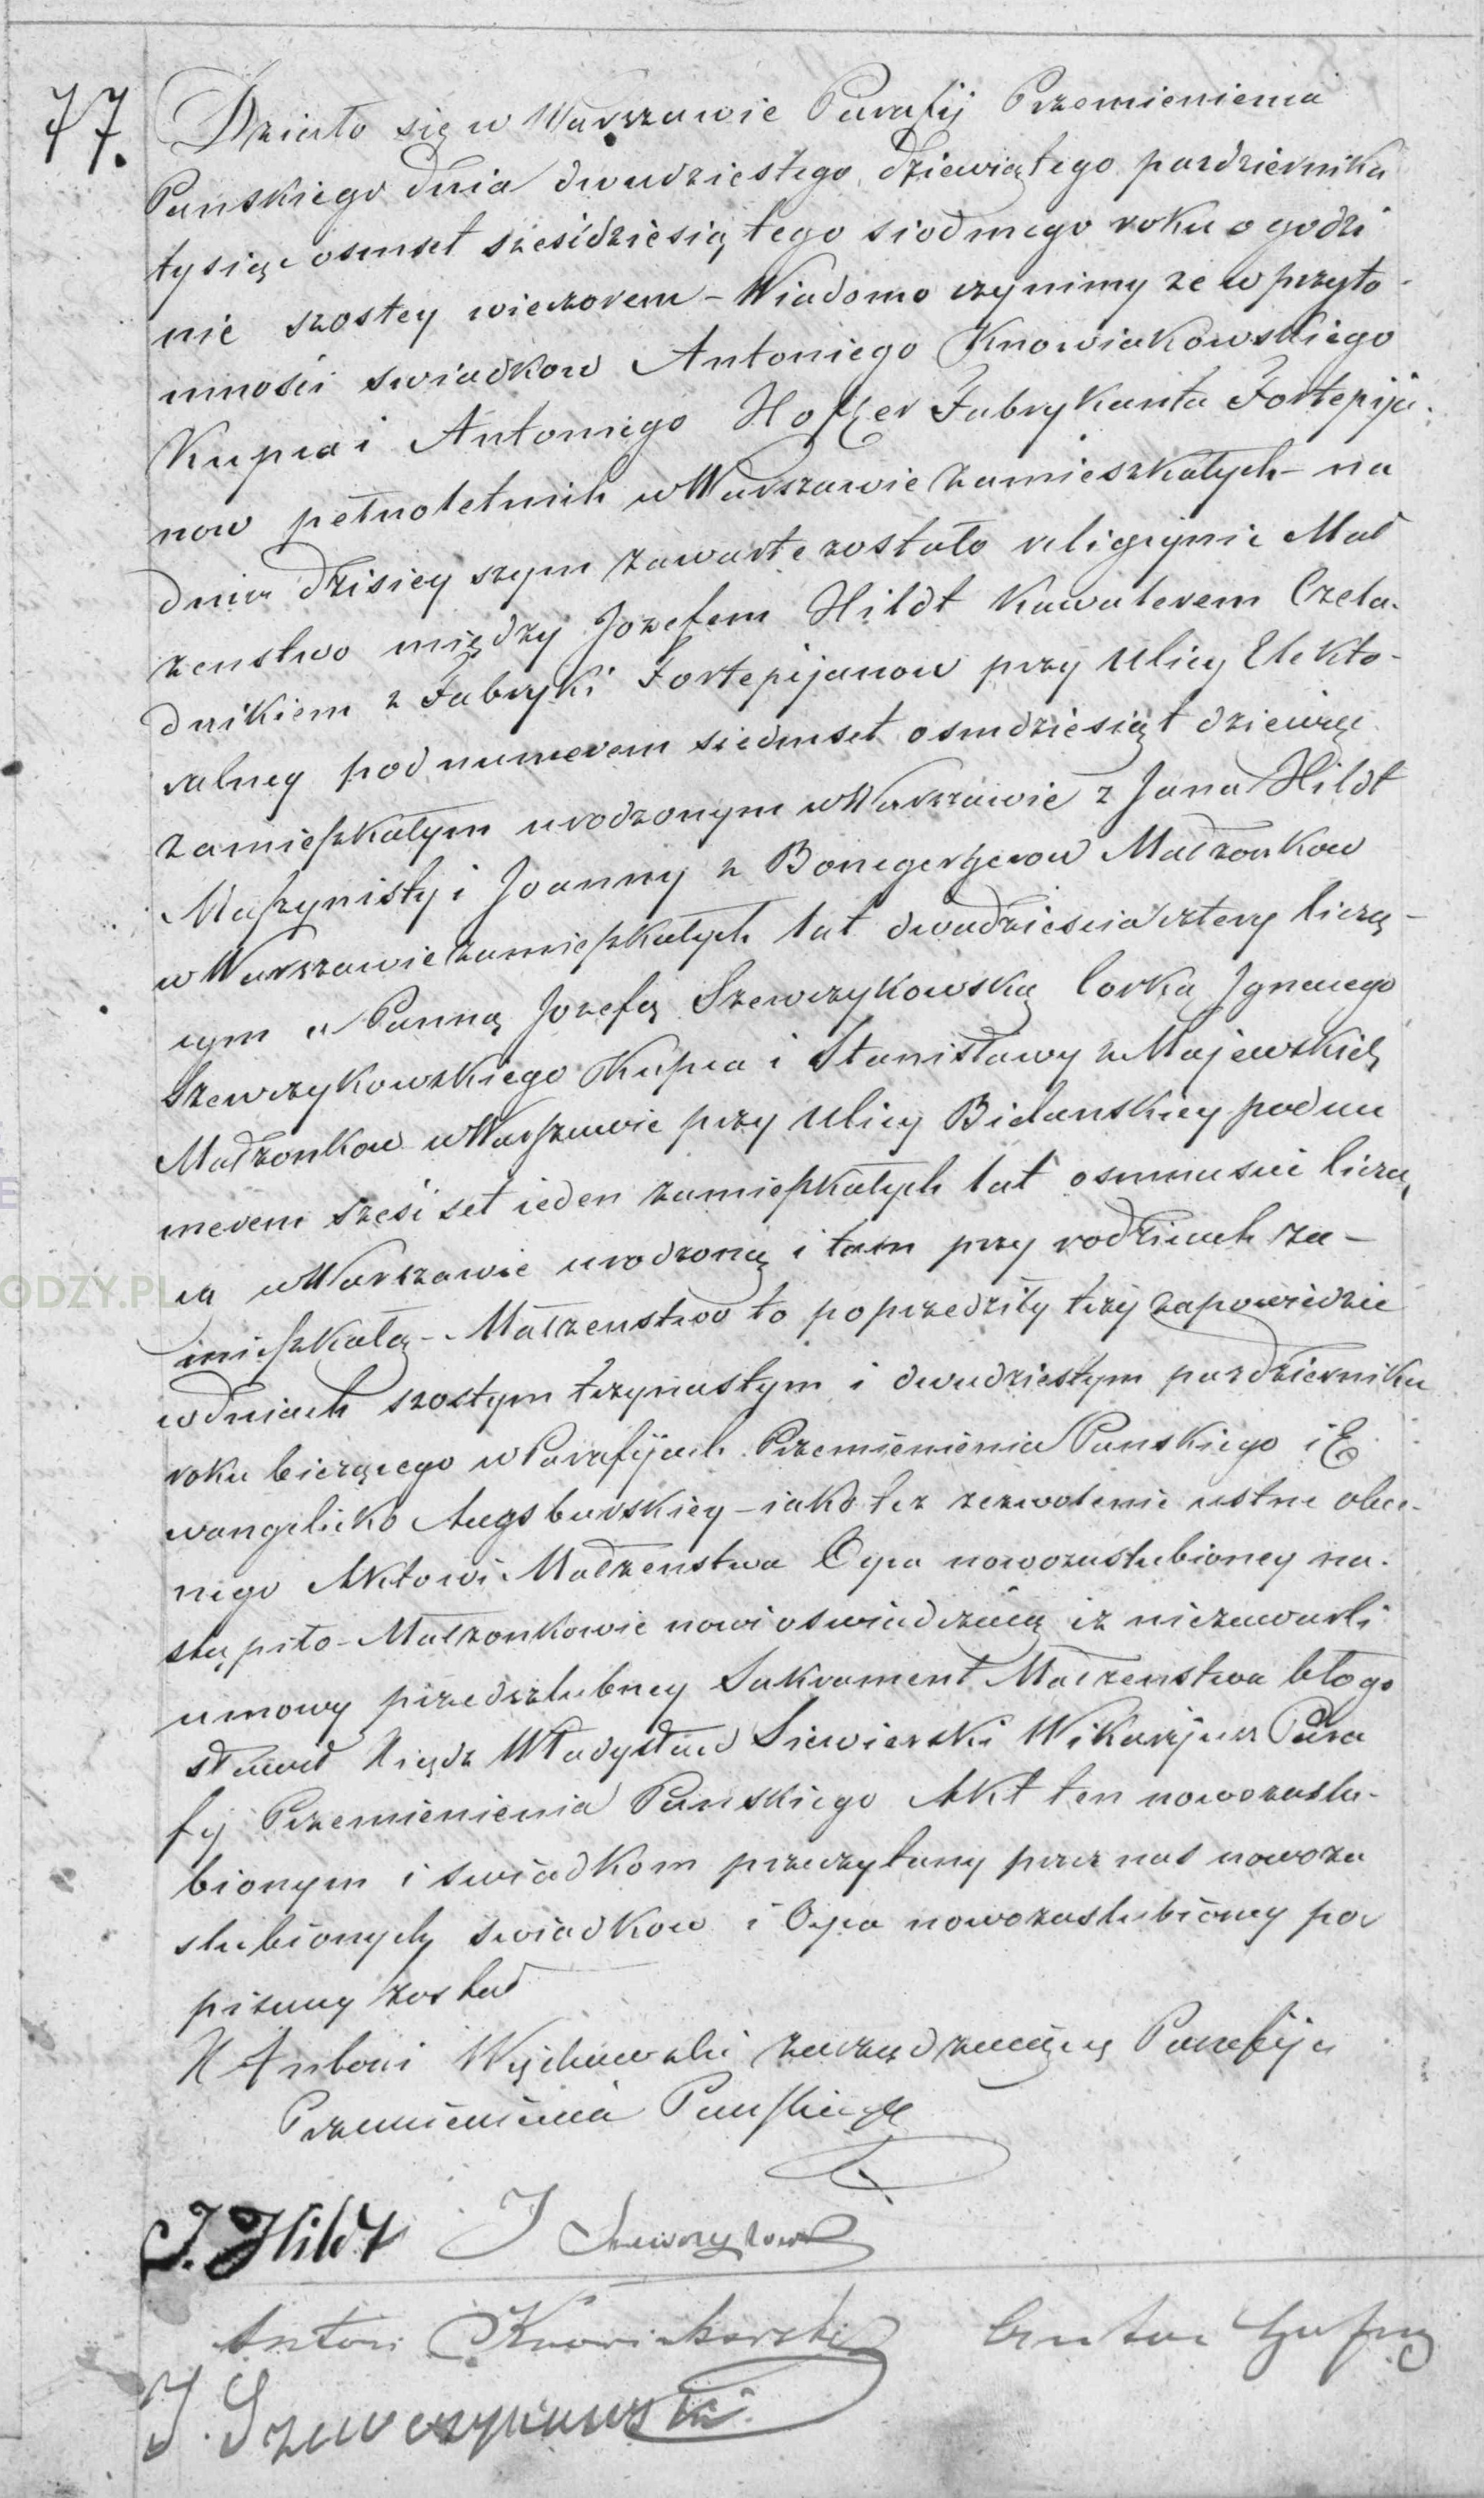 77.
Działo się w Warszawie Parafij Przemienienia
Panskiego dnia dwudziestego dziewiątego pazdziernika
tysiąc osmset szescdziesiątego siodmego roku o godzi
nie szostey wieczorem – Wiadomo czynimy ze w przyto-
mnosci swiadkow Antoniego Knowiakowskiego
Kupca i Antoniego Hofzer Fabrykanta Fortepija-
now pełnoletnich w Warszawie zamieszkałych – na
dniu dzisieyszym zawarte zostało religijnie Mał
zenstwo między Jozefem Hildt Kawalerem Czela-
dnikiem z Fabryki Fortepijanow przy Ulicy Elekto-
ralney pod numerem siedmset osmdziesiąt dziewięc
zamieszkałym urodzonym w Warszawie z Jana Hildt
Maszynisty i Joanny z Małzonkow
w Warszawie zamieszkałych lat dwadziescia cztery liczą-
cym a Panną Jozefą Szewczykowską Corką Jgnacego
Szewczykowskiego Kupca i Stanisławy z Majewskich
Małzonkow w Warszawie przy Ulicy Bielanskiey pod nu
merem szesc set ieden zamieszkałych lat osmnascie licza,
ca w Warszawie urodzoną i tam przy rodzicach za-
mieszkałą – Małzenstwo to poprzedziły trzy zapowiedzie
w dniach szostym trzynastym i dwudziestym pazdziernika
roku biezącego w Parafijach Przemienienia Panskiego i E
wangelicko Augsburskiey – iako tez zezwolenie ustne obec-
nego Aktowi Małzenstwa Oyca nowozaslubioney na-
stąpiło – Małzonkowie nowi oswiadczaią iz niezawarli
umowy przedszlubney Sakrament Małzenstwa błogo
sławił Xiądz Władysław Siewierski Wikaryusz Para
fij Przemienienia Panskiego Akt ten nowozaslu-
bionym i swiadkom przeczytany przez nas nowoza
slubionych swiadkow i Oyca nowozaslubioney po
pisany został
X Antoni zarządzaiący Parafiją
Przemienienia Panskiego
J. Hildt J Szewczykows
Antoni Knowiakowski Anton
J. Szewczykowski
ODZY.PL